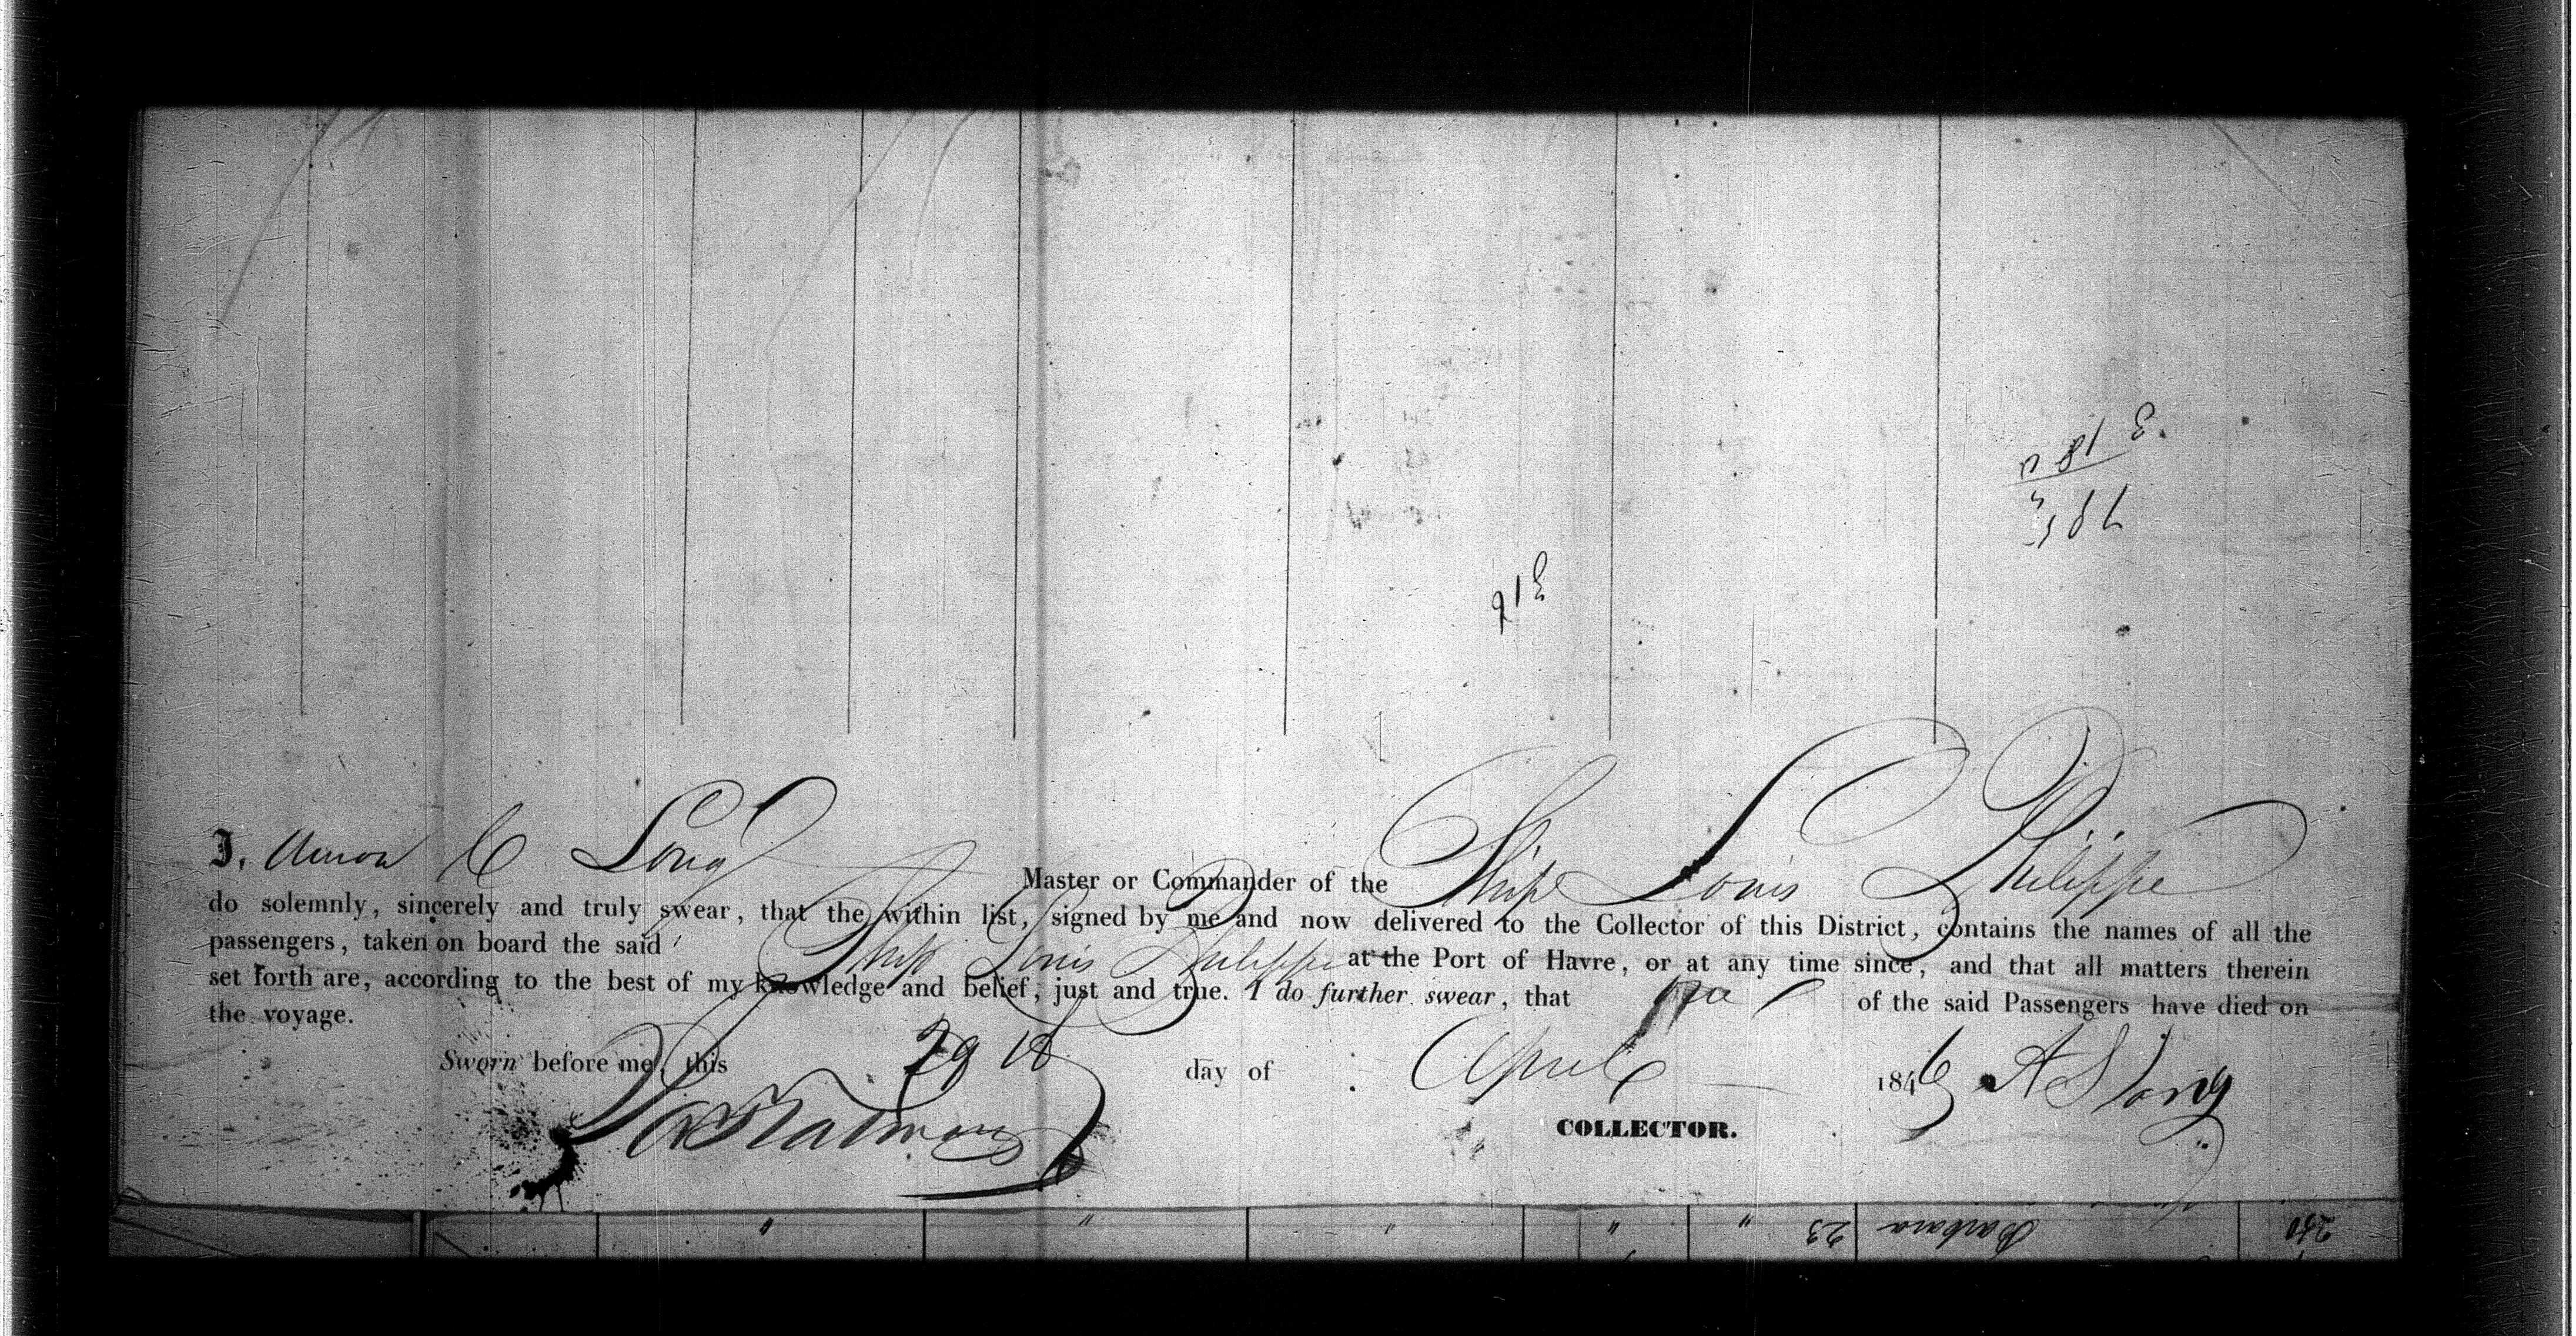 I, C Long Master or Commander of the Ship Louis Philippe
do solemnly, sincerely and truly swear, that the within list, signed by me and now delivered to the Collector of this District, contains the names of all the
passengers, taken on board the said Ship Louis Philippe at the Port of Havre, or at any time since, and that all matters therein
set forth are, according to the best of my knowledge and belief, just and true. I do further swear, that of the said Passengers have died on
the voyage.
Sworn before me, this 29th day of April 1846
COLLECTOR.
" " " " " " 23 Barbara 240